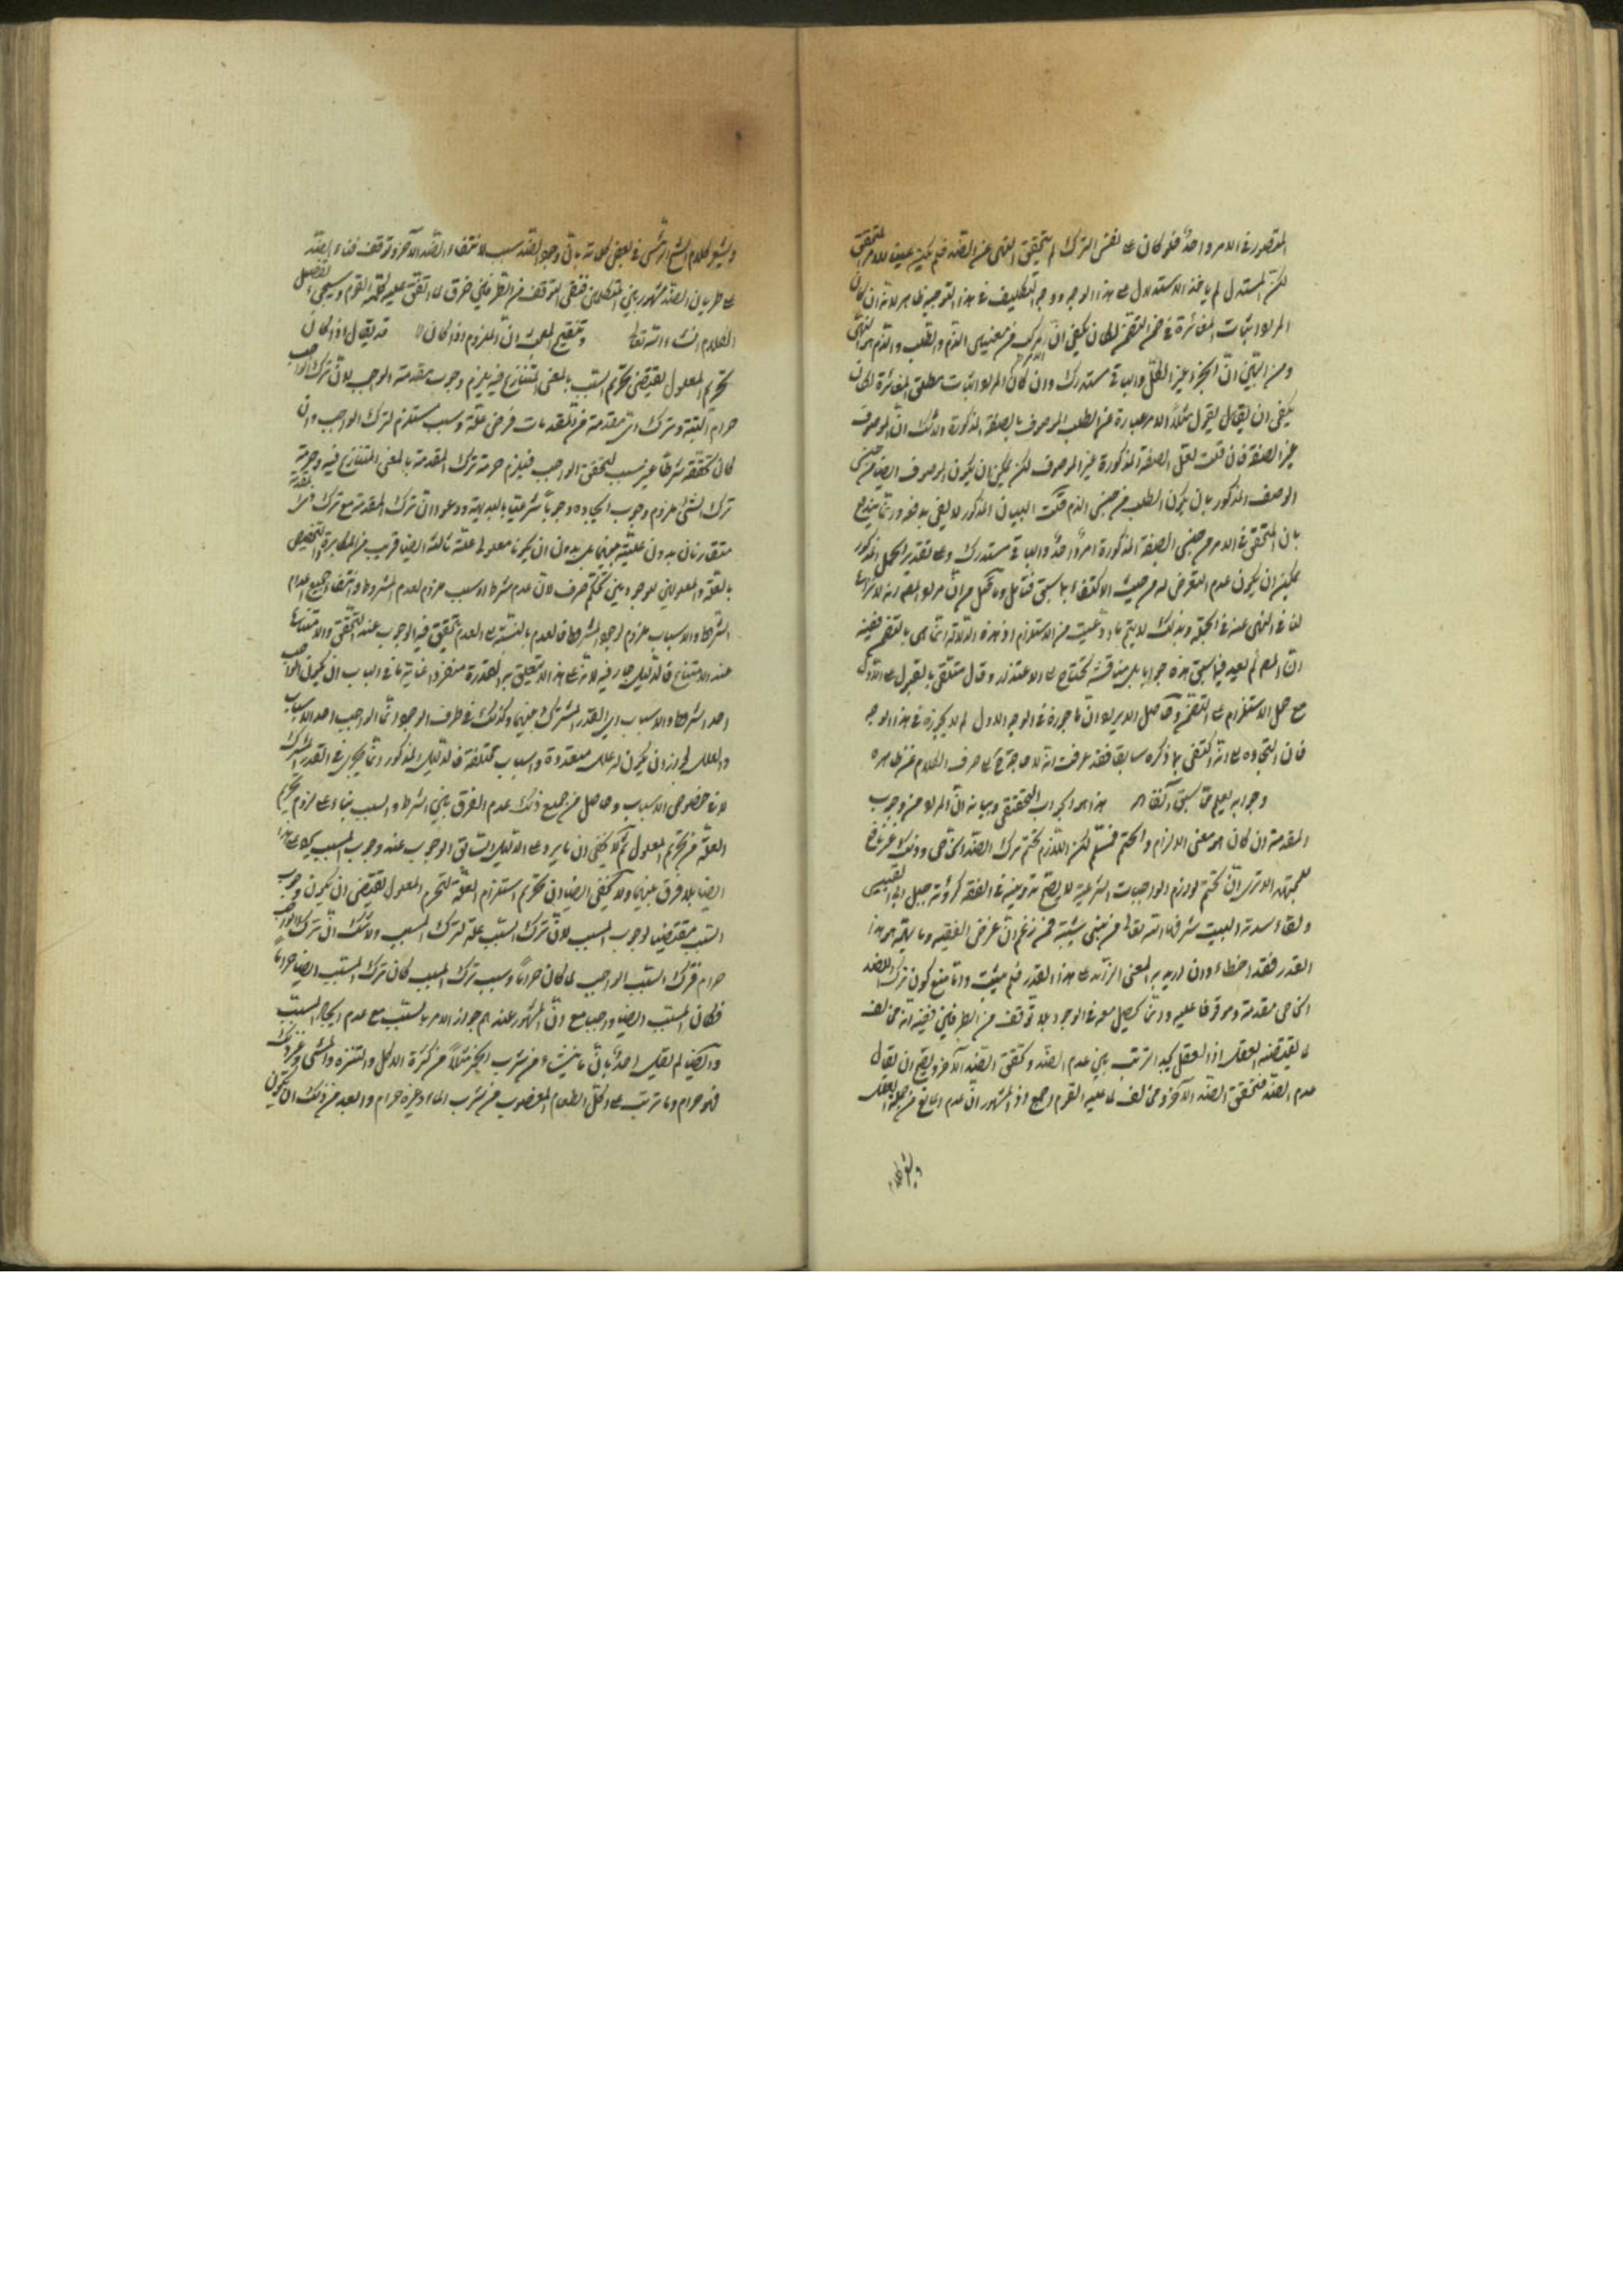 المقصور في الامر واحدا فلو كان على نفس الترك لم يتحقق النهى عن الضد فلم يكن عينيت للامر المتحقق
لكن المستدل لم يأخذ الاستدلال على هذا الوجه ووجه التكليف في هذا التوجيه ظاهر لانه ان كان
المراد اثبات المغائرة في ضمن التضمن لكان يكفى ان الامر مركب من معنيين الذم والطلب والذم هو النهى
ومن البين ان الجزء غير الكل والباقى مستدرك وان كان المراد اثبات مطلق المغائرة لكان
يكفى ان يقال يقول مثلا الامر عبارة عن الطلب الموصوف بالصفة المذكورة ولا شك ان الموصوف
غير الصفة فان قلت لعل الصفة المذكورة غير الموصوف لكن يمكن ان يكون الموصوف ايضا من جنس
الوصف المذكور بان يكون الطلب من جنس الذم قلت البيان المذكور لا يفى بدفعه وانما يندفع
بان المتحقق في الامر من جنس الصفة المذكورة امرا واحدا والباقى مستدرك وعلى تقدير الحمل المذكور
يمكن ان يكون عدم التعرض له من حيث الاكتفاء بما سبق فتأمل
لنا في النهى عنه في الجملة وبذلك لا يتم ما ادعيت من الاستلزام اذ هذه الدلالة انما هى بالتضمن ففيه
ان المص لم يعد فيما سبق هذه جوابا بل مناقشة تحتاج الى الاعتذار وقال متلقى بالقبول على الاول
مع حمل الاستلزام على التضمن وحاصل الايراد ان ما جوزه في الوجه الاول لم لا يجوزه في هذا الوجه
فان التجاوه على انه اكتفى بما ذكره سابقا فقد عرفت انه لا حاجة الى صرف الكلام عن ظاهره
وجوابه يعلم مما سبق آنفا اه هذا هو الجواب التحقيقى وبيانه ان المراد من وجوب
المقدمة ان كان هو معنى الالزام والتحتم فمسلم لكن اللازم تحتم ترك الضد الخاص وذلك
للمجتهد الا ترى ان تحتم لوازم الواجبات الشرعية لا يصح تدوينه في الفقه كرؤية جبل ابى القبيس
ولقاء سدنة البيت شرفها الله تعالى من بنى شيبة فمن زعم ان غرض الفقيه وما يهمه هو هذا
القدر فقد اخطاء وان اريد به المعنى الزائد على هذا القدر فلم يثبت وانا منع كون ترك الضد
الخاص مقدمة وموقوفا عليه وانما يحصل معه في الوجود بلا توقف من الطرفين ففيه انه مخالف
لما يقتضيه العقل اذ العقل يجد الترتب بين عدم الضد وتحقق الضد الآخر ويصح ان يقال
عدم الضد فتحقق الضد الآخر ومخالف لما عليه القوم اجمع اذ المشهور ان عدم المانع من جملة العلل
ويشعر كلام الشيخ الرئيس في بعض كلماته بان وجود الضد سبب لانتفاء الضد الآخر وتوقف فناء الضد
على طريان الضد مشهور بين المتكلمين فنفى التوقف من الطرفين خرق لما اتفق عليه القوم وسيجىء تفصيل
الكلام انشاء الله تعالى وتنقيح المبحث ان الملزوم اذا كان اه قد يقال اذا كان
تحريم المعلول يقتضى تحريم السبب بالمعنى المتنازع فيه يلزم وجوب مقدمة الواجب لان ترك الواجب
حرام البتة وترك اى مقدمة من المقدمات فرض علة وسبب مستلزم لترك الواجب وان
كان تحققه شرطا غير سبب لتحقق الواجب فيلزم حرمة ترك المقدمة بالمعنى المتنازع فيه وحرمة
ترك الشئ ملزوم وجوب ايجاده وجوبا شرعيا بالبديهة ودعوى ان ترك المقدمة مع ترك ذى المقدمة
متقارنان بدون علية بينهما بل بدون ان يكونا معلولى علة ثالثة ايضا قريب من المكابرة والتخصيص
بالعلة والمعلولين الموجودين تحكم صرف لان عدم شرط او سبب ملزوم لعدم المشروط وانتفاء جميع اعدام
الشرائط والاسباب ملزوم لوجود المشروط فالعدم بالنسبة الى العدم تحقق فيه الوجوب عند التحقق والامتناع
عند الامتناع فالدليل جار فيه لانه على هذا لا يتعلق به القدرة منفردا غاية ما في الباب ان يكون الواجب
احد الشرائط والاسباب اى القدر المشترك بينهما وكذلك في طرف الوجود انما الواجب احد الاسباب
والعلل لجواز ان يكون له علل متعددة واسباب مختلفة فالدليل المذكور انما يجرى في القدر المشترك
لا في خصوص الاسباب وحاصل من جميع ذلك عدم الفرق بين الشرط والسبب بناء على لزوم تحريم
العلة من تحريم المعلول ثم لا يخفى ان ما يرد على الدليل السابق الوجوب عند وجوب المسبب يرد على هذا
ايضا بلا فرق بينهما ولا يخفى ايضا ان تحريم استلزام العلة لتحريم المعلول يقتضى ان يكون وجوب
السبب مقتضيا لوجوب المسبب لان ترك السبب علة لترك المسبب ولا شك ان ترك الواجب
حرام فترك السبب الواجب لما كان حراما وسبب ترك المسبب كان ترك المسبب ايضا حراما
فكان المسبب ايضا واجبا مع ان المشهور عندهم جواز الامر بالسبب مع عدم ايجاب المسبب
وايضا لم يقل احد بان ما ينشاء من شرب الخمر مثلا من كثرة الاكل والتنزه والمشى وغير ذلك
فهو حرام وما ترتب على اكل الطعام المغصوب من شرب الماء وغيره حرام وابعد من ذلك ان يكون